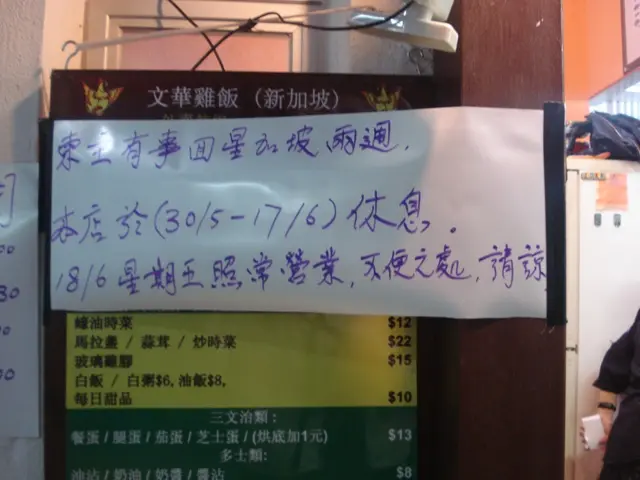 文華雞飯 (新加坡)
東主有事回星加坡兩週.
本店於(30/5-17/6)休息.
18/6星期五照常營業,不便之處,請諒
蠔油時菜 $12
馬拉盞 / 蒜茸 / 炒時菜 $22
玻璃雞膠 $15
白飯 / 白粥$6,油飯$8,
每日甜品 $10
三文治類:
餐蛋 / 腿蛋 / 茄蛋 / 芝士蛋 / (烘底加1元) $13
多士類:
油沾 / 奶油 / 奶醬 / 醬沾 $8